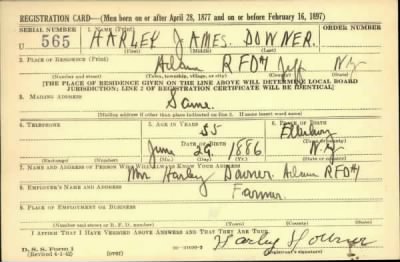 REGISTRATION CARD—(Men born on or after April 28, 1877 and on or before February 16, 1897)
SERIAL NUMBER 1. NAME (Print) ORDER NUMBER
U 565 HARLEY JAMES DOWNER.
(First) (Middle) (Last)
2. PLACE OF RESIDENCE (Print)
Adams RFD#1 Jeff N.Y.
(Number and street) (Town, township, village, or city) (County) (State)
[THE PLACE OF RESIDENCE GIVEN ON THE LINE ABOVE WILL DETERMINE LOCAL BOARD
JURISDICTION; LINE 2 OF REGISTRATION CERTIFICATE WILL BE IDENTICAL]
3. MAILING ADDRESS
Same.
[Mailing address if other than place indicated on line 2. If same insert word same]
4. TELEPHONE 5. AGE IN YEARS 6. PLACE OF BIRTH
55 Ellisburg
DATE OF BIRTH (Town or county)
June 29. 1886 N.Y.
(Exchange) (Number) (Mo.) (Day) (Yr.) (State or country)
7. NAME AND ADDRESS OF PERSON WHO WILL ALWAYS KNOW YOUR ADDRESS
Mrs Harley Downer. Adams RFD#1
8. EMPLOYER'S NAME AND ADDRESS
Farmer.
9. PLACE OF EMPLOYMENT OR BUSINESS
(Number and street or R. F. D. number) (Town) (County) (State)
I AFFIRM THAT I HAVE VERIFIED ABOVE ANSWERS AND THAT THEY ARE TRUE.
Harley Downer
D. S. S. Form 1
(Revised 4-1-42) (over) (Registrant's signature)